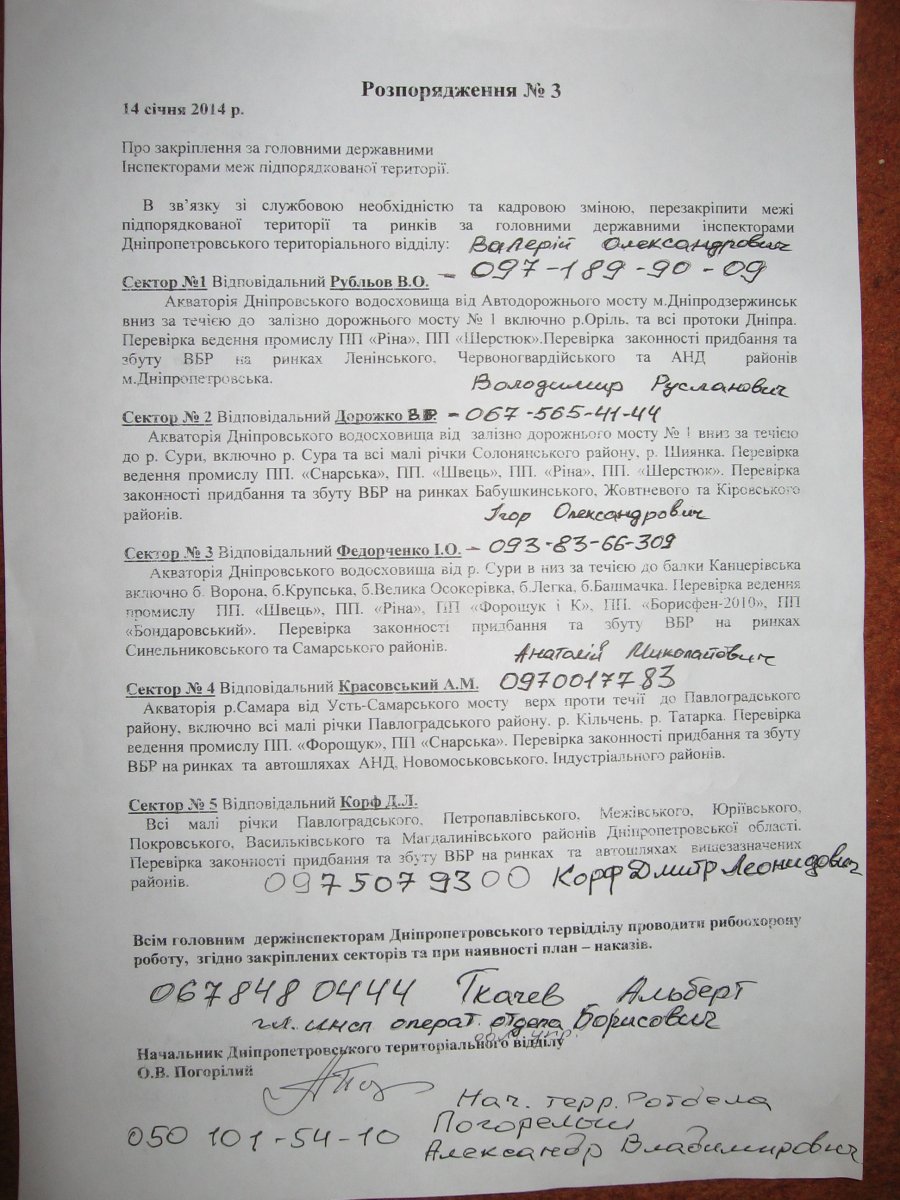 Розпорядження № 3
14 січня 2014 р.
Про закріплення за головними державними
Інспекторами меж підпорядкованої території.
В зв’язку зі службовою необхідністю та кадровою зміною, перезакріпити межі
підпорядкованої території та ринків за головними державними інспекторами
Дніпропетровського територіального відділу: Валерій Олександрович
Сектор №1 Відповідальний Рубльов В.О. – 097-189-90-09
Акваторія Дніпровського водосховища від Автодорожнього мосту м.Дніпродзержинськ
вниз за течією до залізно дорожнього мосту № 1 включно р.Оріль, та всі протоки Дніпра.
Перевірка ведення промислу ПП «Ріна», ПП «Шерстюк».Перевірка законності придбання та
збуту ВБР на ринках Ленінського, Червоногвардійського та АНД районів
м.Дніпропетровська. Володимир Русланович
Сектор № 2 Відповідальний Дорожко – 067-565-41-44
Акваторія Дніпровського водосховища від залізно дорожнього мосту № 1 вниз за течією
до р. Сури, включно р. Сура та всі малі річки Солонянського району, р. Шиянка. Перевірка
ведення промислу ПП. «Снарська», ПП. «Швець», ПП. «Ріна», ПП. «Шерстюк». Перевірка
законності придбання та збуту ВБР на ринках Бабушкинського, Жовтневого та Кіровського
районів. Ігор Олександрович
Сектор № 3 Відповідальний Федорченко І.О. – 093-83-66-309
Акваторія Дніпровського водосховища від р. Сури в низ за течією до балки Канцерівська
включно б. Ворона, б.Крупська, б.Велика Осокорівка, б.Легка, б.Башмачка. Перевірка ведення
промислу ПП. «Швець», ПП. «Ріна», ПП «Форощук і К», ПП. «Борисфен-2010», ПП
«Бондаровський». Перевірка законності придбання та збуту ВБР на ринках
Синельниковського та Самарського районів. Анатолій Миколайович
Сектор № 4 Відповідальний Красовський А.М. 0970017783
Акваторія р.Самара від Усть-Самарського мосту верх проти течії до Павлоградського
району, включно всі малі річки Павлоградського району, р. Кільчень, р. Татарка. Перевірка
ведення промислу ПП. «Форощук», ПП «Снарська». Перевірка законності придбання та збуту
ВБР на ринках та автошляхах АНД, Новомоськовського, Індустріального районів.
Сектор № 5 Відповідальний Корф Д.Л.
Всі малі річки Павлоградського, Петропавлівського, Межівського, Юріївського,
Покровського, Васильківського та Магдалинівського районів Дніпропетровської області.
Перевірка законності придбання та збуту ВБР на ринках та автошляхах вищезазначених
районів. 0975079300 Корф Дмитр Леонидович
Всім головним держінспекторам Дніпропетровського тервідділу проводити рибоохорону
роботу, згідно закріплених секторів та при наявності план – наказів.
0678480444 Ткачев Альберт
гл. инсп операт. отдела Борисович
обл. упр.
Начальник Дніпропетровського територіального відділу
О.В. Погорілий
Нач. терр.
050 101-54-10 Погорелый
Александр Владимирович